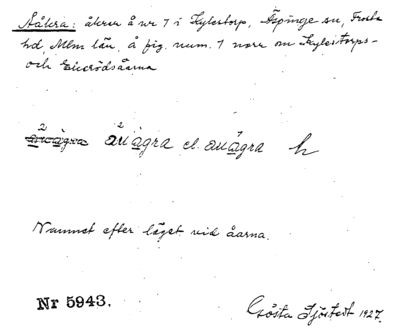 Ååkra: åkrar å nr 7 i Kylestorp, Äspinge sn, Frosta
hd, Mlm län, å fig. num. 1 norr om Kylestorps-
och åarna
åuàgra el. auàgra h
Namnet efter läget vid åarna.
Nr 5943.
Gösta Sjöstedt 1927.